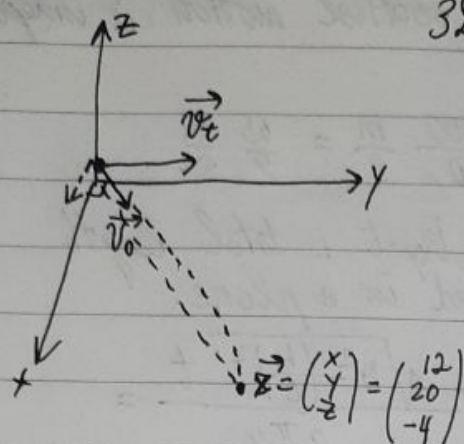 32
z
v_t
y
v_0
x
s = (x y z) = (12 20 -4)